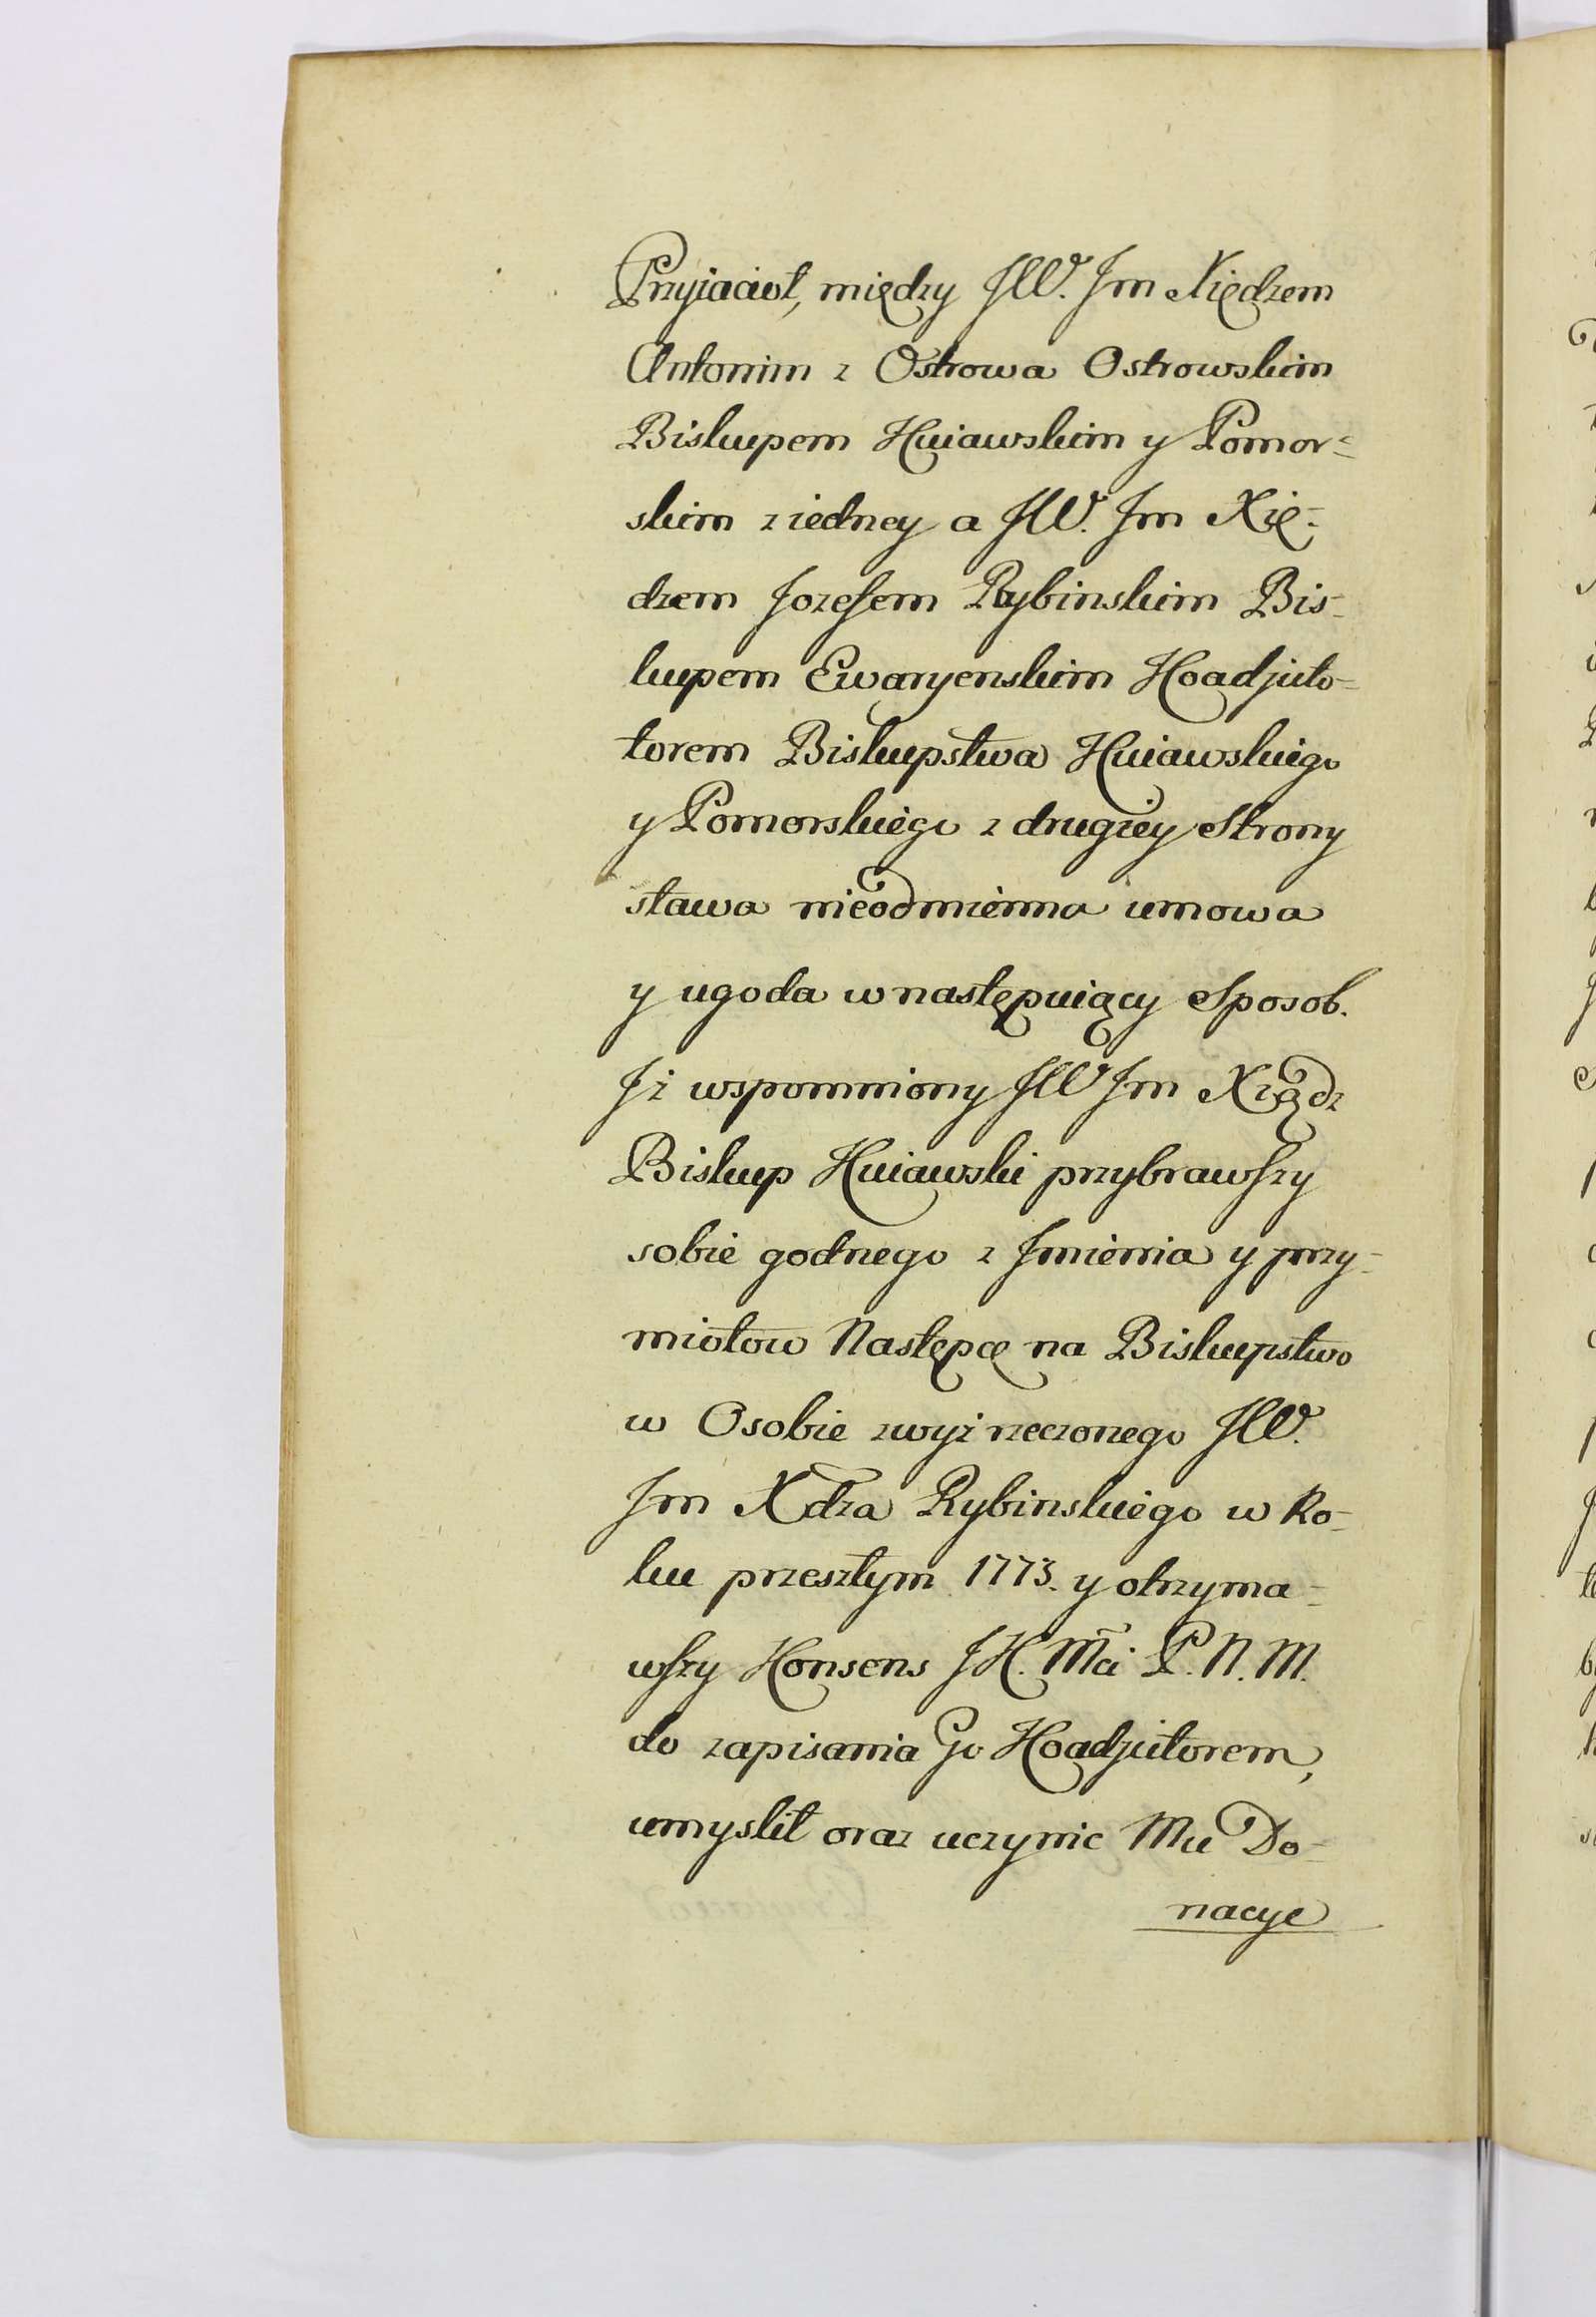 Przyiacioł, między JW. Jm Xiędzem
Antonim z Ostrowa Ostrowskim
Biskupem Kuiawskim y Pomor=
skim z iedney a JW. Jm Xię=
dzem Jozefem Rybinskim Bis-
kupem Ewaryenskim Koadjuto=
torem Biskupstwa Kuiawskiego
y Pomorskiego z drugiey Strony
stawa nieodmienna umowa
y ugoda w następuiący Sposob.
Jż wspomniony JW Jm Xiądz
Biskup Kuiawski przybrawszy
sobie godnego z Jmienia y przy-
miotow Następcę na Biskupstwo
w Osobie zwyż rzeczonego JW.
Jm Xdza Rybinskiego w Ro-
ku przeszłym 1773. y otrzyma-
wszy Konsens JK. Mci P. N. M.
do zapisania Go Koadjutorem,
umyslił oraz uczynic Mu Do-
nacye